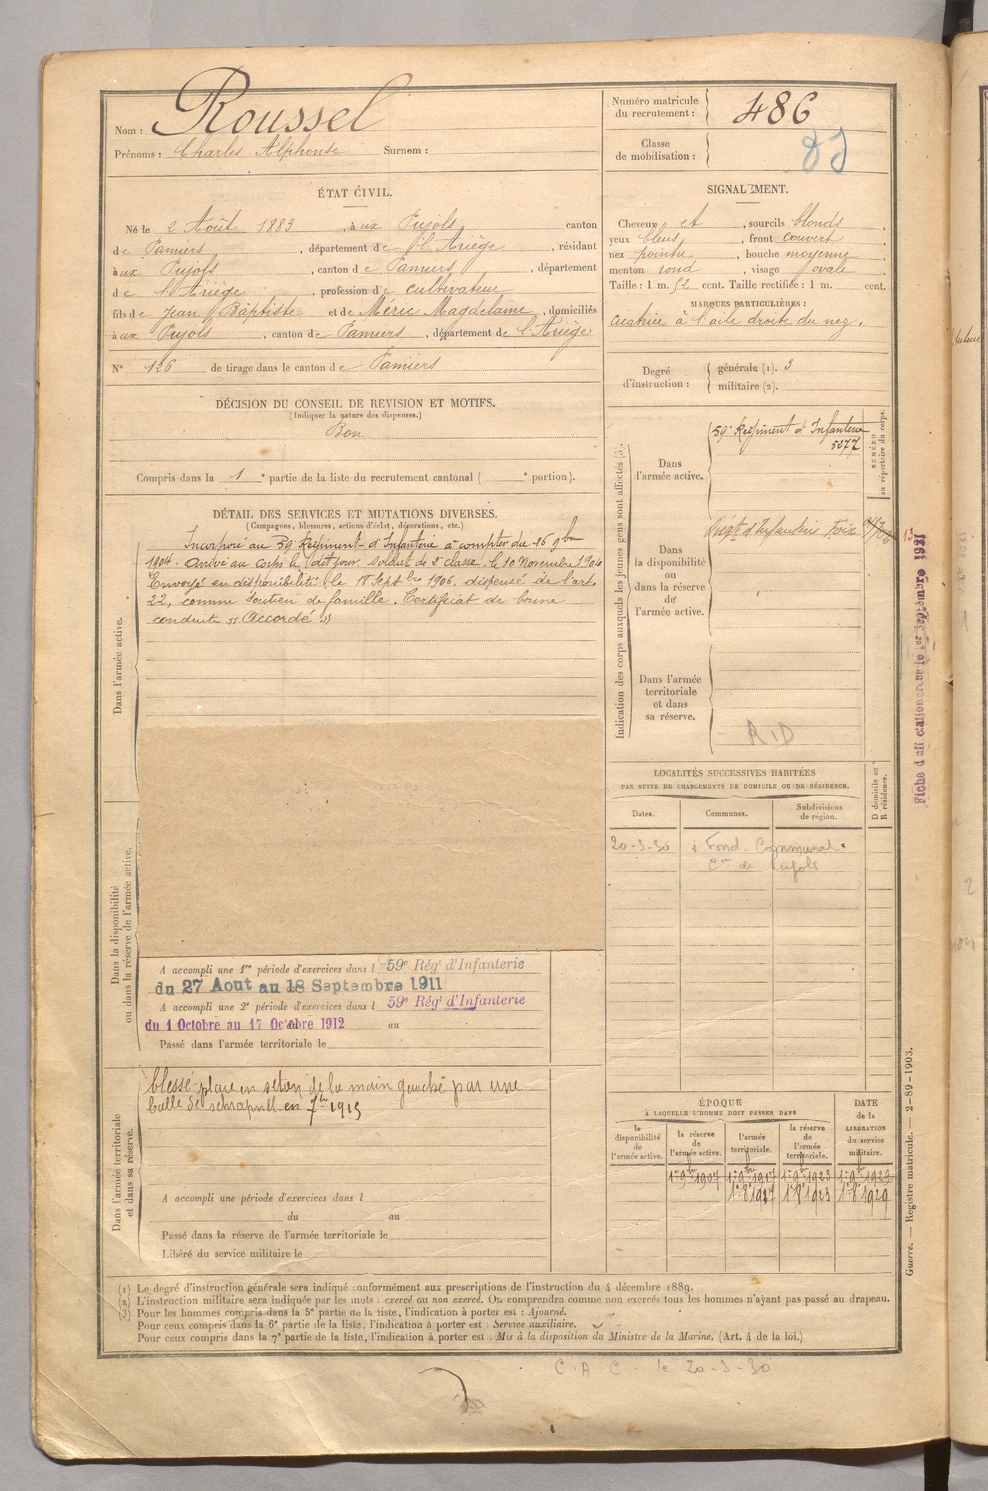 Nom : Roussel
Prénoms : Charles Alphonse Surnom :
Numéro matricule du recrutement : 486
Classe de mobilisation :
ÉTAT CIVIL.
Né le 2 Août 1883, à ux Pujols, canton
de Pamiers, département de l'Ariège, résidant
à ux Pujols, canton de Pamiers, département
de l'Ariège, profession de cultivateur
fils de Jean Baptiste et de Méric Magdelaine, domiciliés
à ux Pujols, canton de Pamiers, département de l'Ariège
N° 126 de tirage dans le canton de Pamiers
SIGNALEMENT.
Cheveux et, sourcils blonds,
yeux bleus, front couvert,
nez pointu, bouche moyenne,
menton rond, visage ovale
Taille : 1 m. 52 cent. Taille rectifiée : 1 m. cent.
MARQUES PARTICULIÈRES :
cicatrice à l'aile droite du nez.
Degré d'instruction : générale (1). 3
militaire (2).
DÉCISION DU CONSEIL DE REVISION ET MOTIFS.
(Indiquer la nature des dispenses.)
Bon
Compris dans la 1e partie de la liste du recrutement cantonal ( e portion).
DÉTAIL DES SERVICES ET MUTATIONS DIVERSES.
(Campagnes, blessures, actions d'éclat, décorations, etc.)
Dans l'armée active.
Incorporé au 59e Régiment d'Infanterie à compter du 16 9bre
1904. Arrivé au corps le dit jour. Soldat de 2e classe. le 10 Novembre 1904
Envoyé en disponibilité le 18 Septbre 1906, dispensé de l'art.
22, comme soutien de famille. Certificat de bonne
conduite " Accordé "
Dans la disponibilité
ou dans la réserve de l'armée active.
A accompli une 1re période d'exercices dans l 59e Régt d'Infanterie
du 27 Aout au 18 Septembre 1911
A accompli une 2e période d'exercices dans l 59e Régt d'Infanterie
du 1 Octobre au 17 Octobre 1912 au
Passé dans l'armée territoriale le
Dans l'armée territoriale
et dans sa réserve.
blessé plaie en séton de la main gauche par une
balle de schrapnell en 7bre 1915
A accompli une période d'exercices dans l
du au
Passé dans la réserve de l'armée territoriale le
Libéré du service militaire le
Indication des corps auxquels les jeunes gens sont affectés (3).
NUMÉRO
au répertoire du corps.
Dans
l'armée active.
59e Régiment d'Infanterie
5277
Dans
la disponibilité
ou
dans la réserve
de
l'armée active.
Régt d'Infanterie Foix
Dans l'armée
territoriale
et dans
sa réserve.
R.D
Fiche d'affectation créée le 1er Septembre 1921
LOCALITÉS SUCCESSIVES HABITÉES
PAR SUITE DE CHANGEMENTS DE DOMICILE OU DE RÉSIDENCE.
D domicile ou
R résidence.
Dates. Communes. Subdivisions de région.
20-3-30 Fond. Communal
Cne de Pujols
ÉPOQUE
À LAQUELLE L'HOMME DOIT PASSER DANS
DATE de la LIBÉRATION du service militaire.
la disponibilité de l'armée active.
la réserve de l'armée active.
l'armée territoriale.
la réserve de l'armée territoriale.
1er 9bre 1907 1er 9bre 1917 1er 9bre 1923 1er 9bre 1929
1er 8bre 1923 1er 8bre 1929
Guerre. — Registre matricule. — 2-89-1903.
(1) Le degré d'instruction générale sera indiqué conformément aux prescriptions de l'instruction du 4 décembre 1889.
(2) L'instruction militaire sera indiquée par les mots : exercé ou non exercé. On comprendra comme non exercés tous les hommes n'ayant pas passé au drapeau.
(3) Pour les hommes compris dans la 5e partie de la liste, l'indication à porter est : Ajourné.
Pour ceux compris dans la 6e partie de la liste, l'indication à porter est : Service auxiliaire.
Pour ceux compris dans la 7e partie de la liste, l'indication à porter est : Mis à la disposition du Ministre de la Marine. (Art. 4 de la loi.)
C.A.C. le 20-3-30